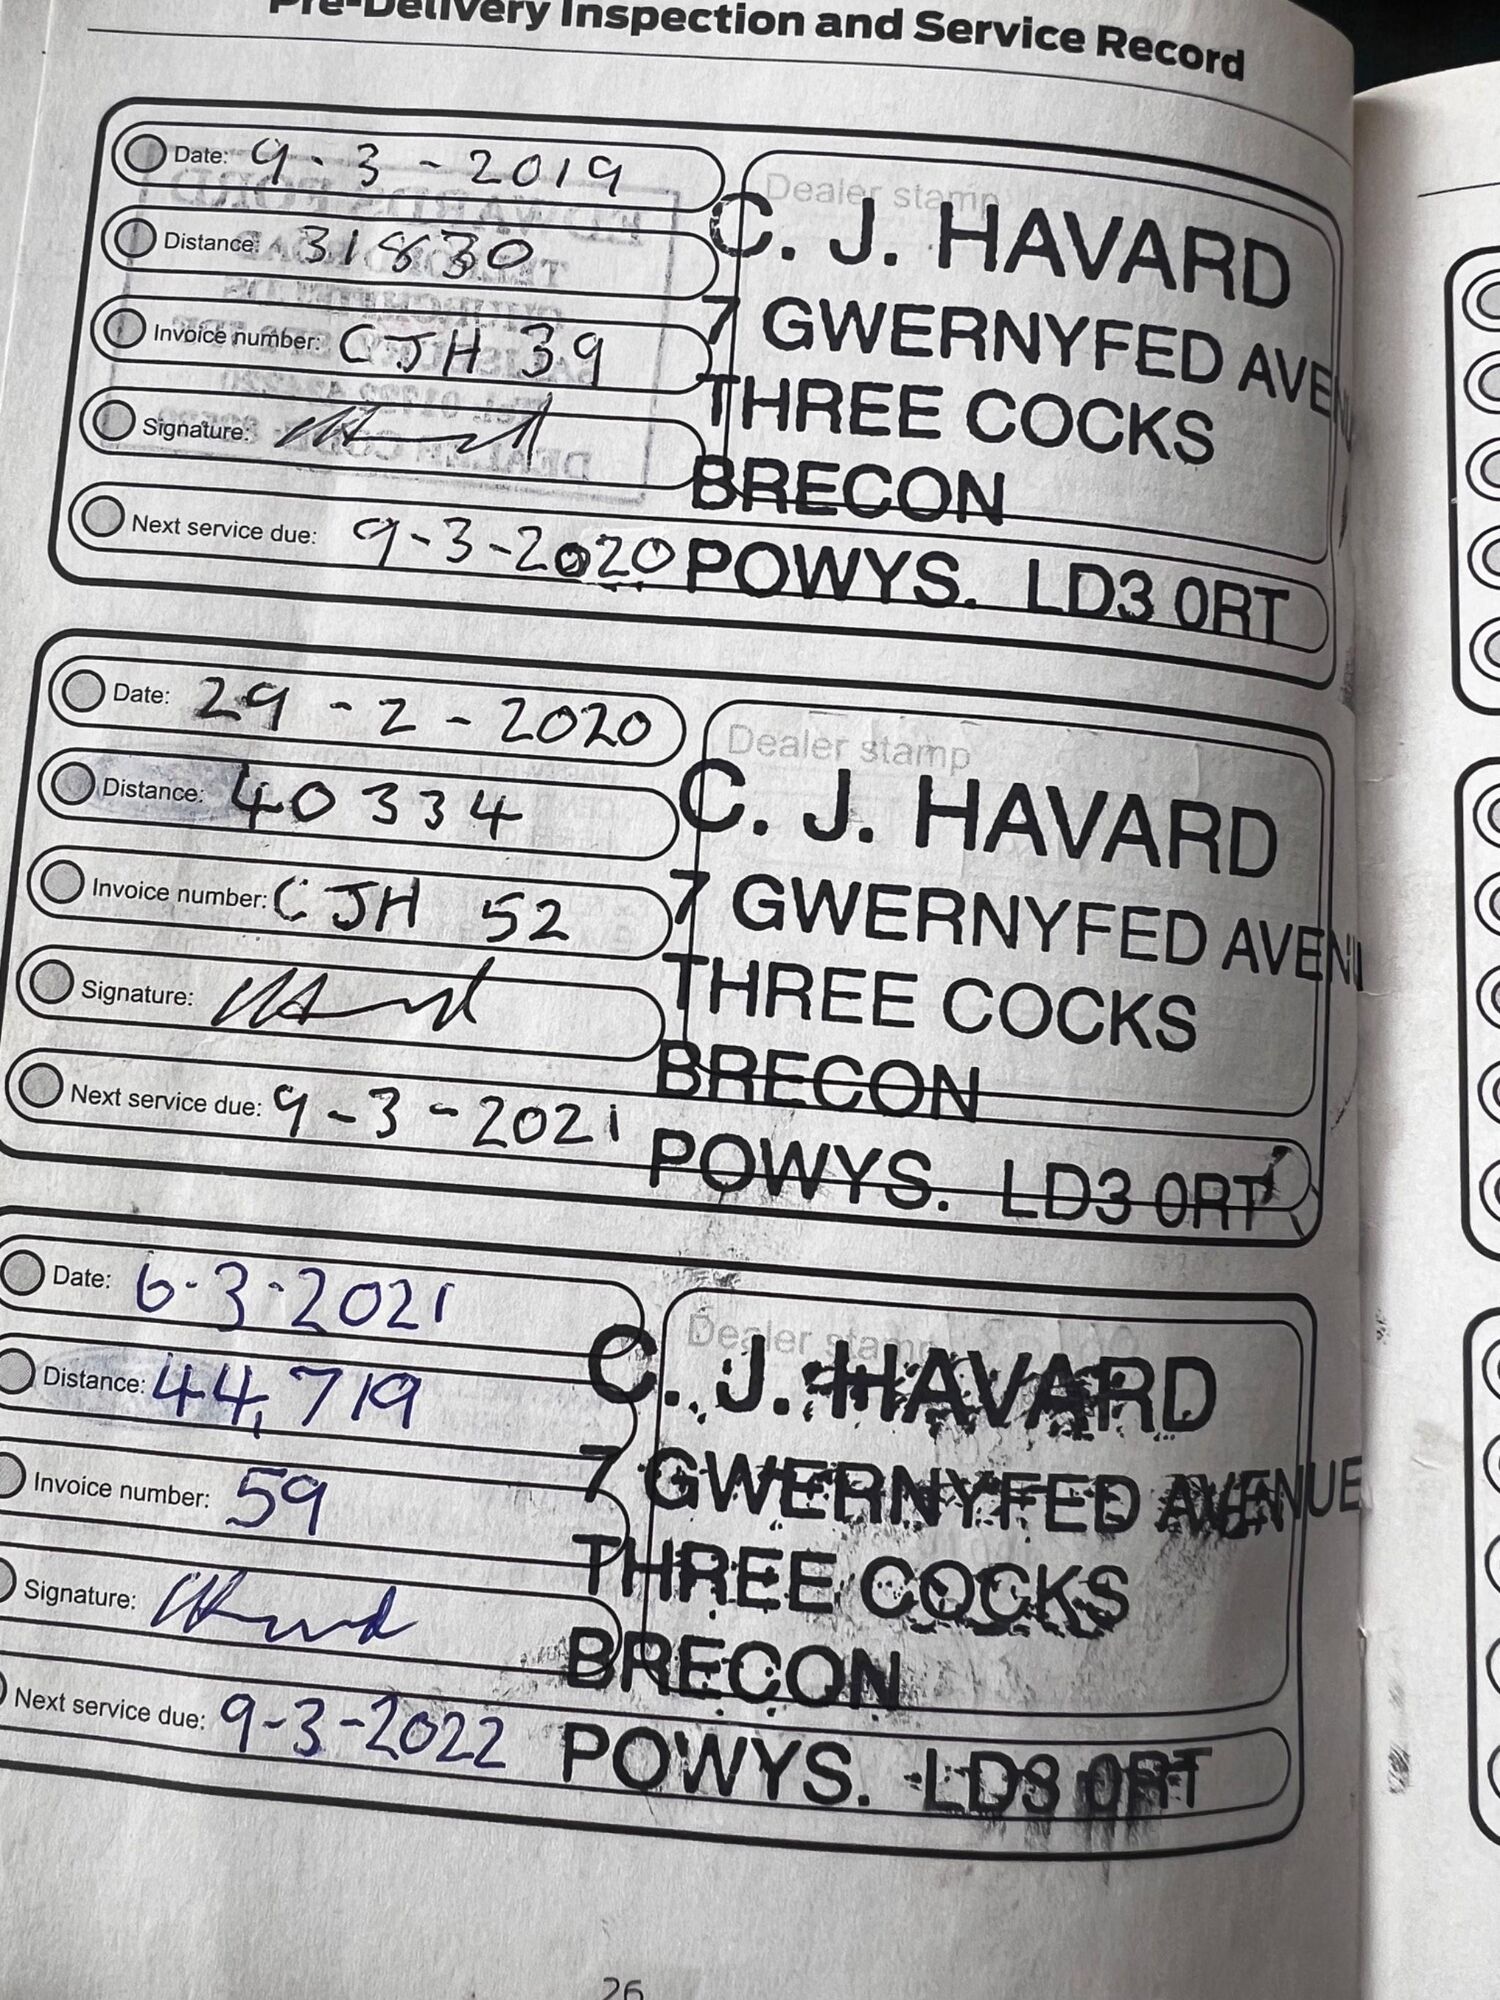 Pre-Delivery Inspection and Service Record
Date: 9-3-2019
Distance: 31830
Invoice number: CJH 39
Signature:
Next service due: 9-3-2020
Dealer stamp
C. J. HAVARD
7 GWERNYFED AVENUE
THREE COCKS
BRECON
POWYS. LD3 0RT
Date: 29-2-2020
Distance: 40334
Invoice number: CJH 52
Signature:
Next service due: 9-3-2021
Dealer stamp
C. J. HAVARD
7 GWERNYFED AVENU
THREE COCKS
BRECON
POWYS. LD3 0RT
Date: 6-3-2021
Distance: 44,719
Invoice number: 59
Signature:
Next service due: 9-3-2022
Dealer stamp
C. J. HAVARD
7 GWERNYFED AVENUE
THREE COCKS
BRECON
POWYS. LD3 0RT
26